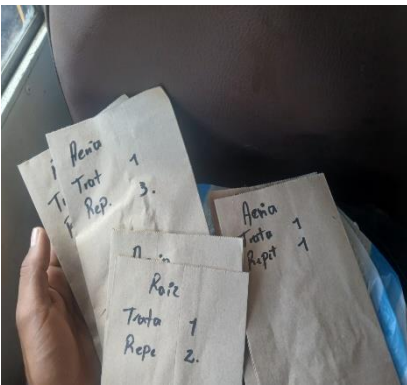 Aeria
Trat 1
Rep. 3.
Aeria
Trata 1
Repit 1
Raiz
Trata 1
Repe 2.